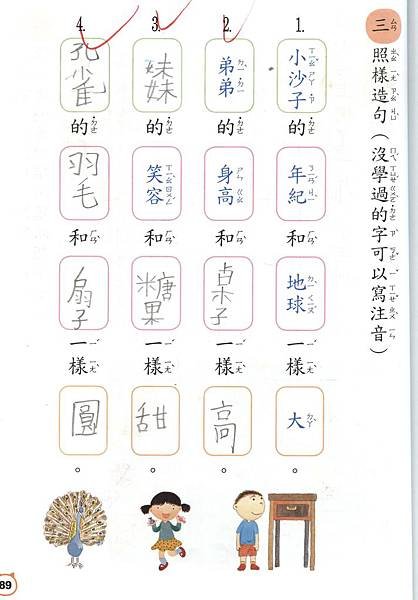 三 照樣造句（沒學過的字可以寫注音）
1. 小沙子的年紀和地球一樣大。
2. 弟弟的身高和桌子一樣高。
3. 妹妹的笑容和糖果一樣甜。
4. 孔雀的羽毛和扇子一樣圓。
89